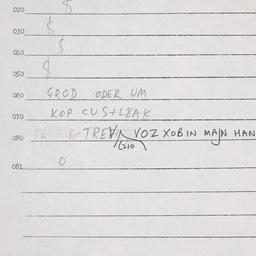 020 $
030 $
040 $
050 $
060 GROD ODER UM
070 KOP CUS+L8AK
080 TREVN VOZ XOBIN MAJN HAN
210
081 O